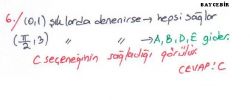 BAYCEBİR
6./ (0,1) şıklarda denenirse → hepsi sağlar
(π/2, 3) " " → A, B, D, E gider.
C seçeneğinin sağladığı görülür
CEVAP: C